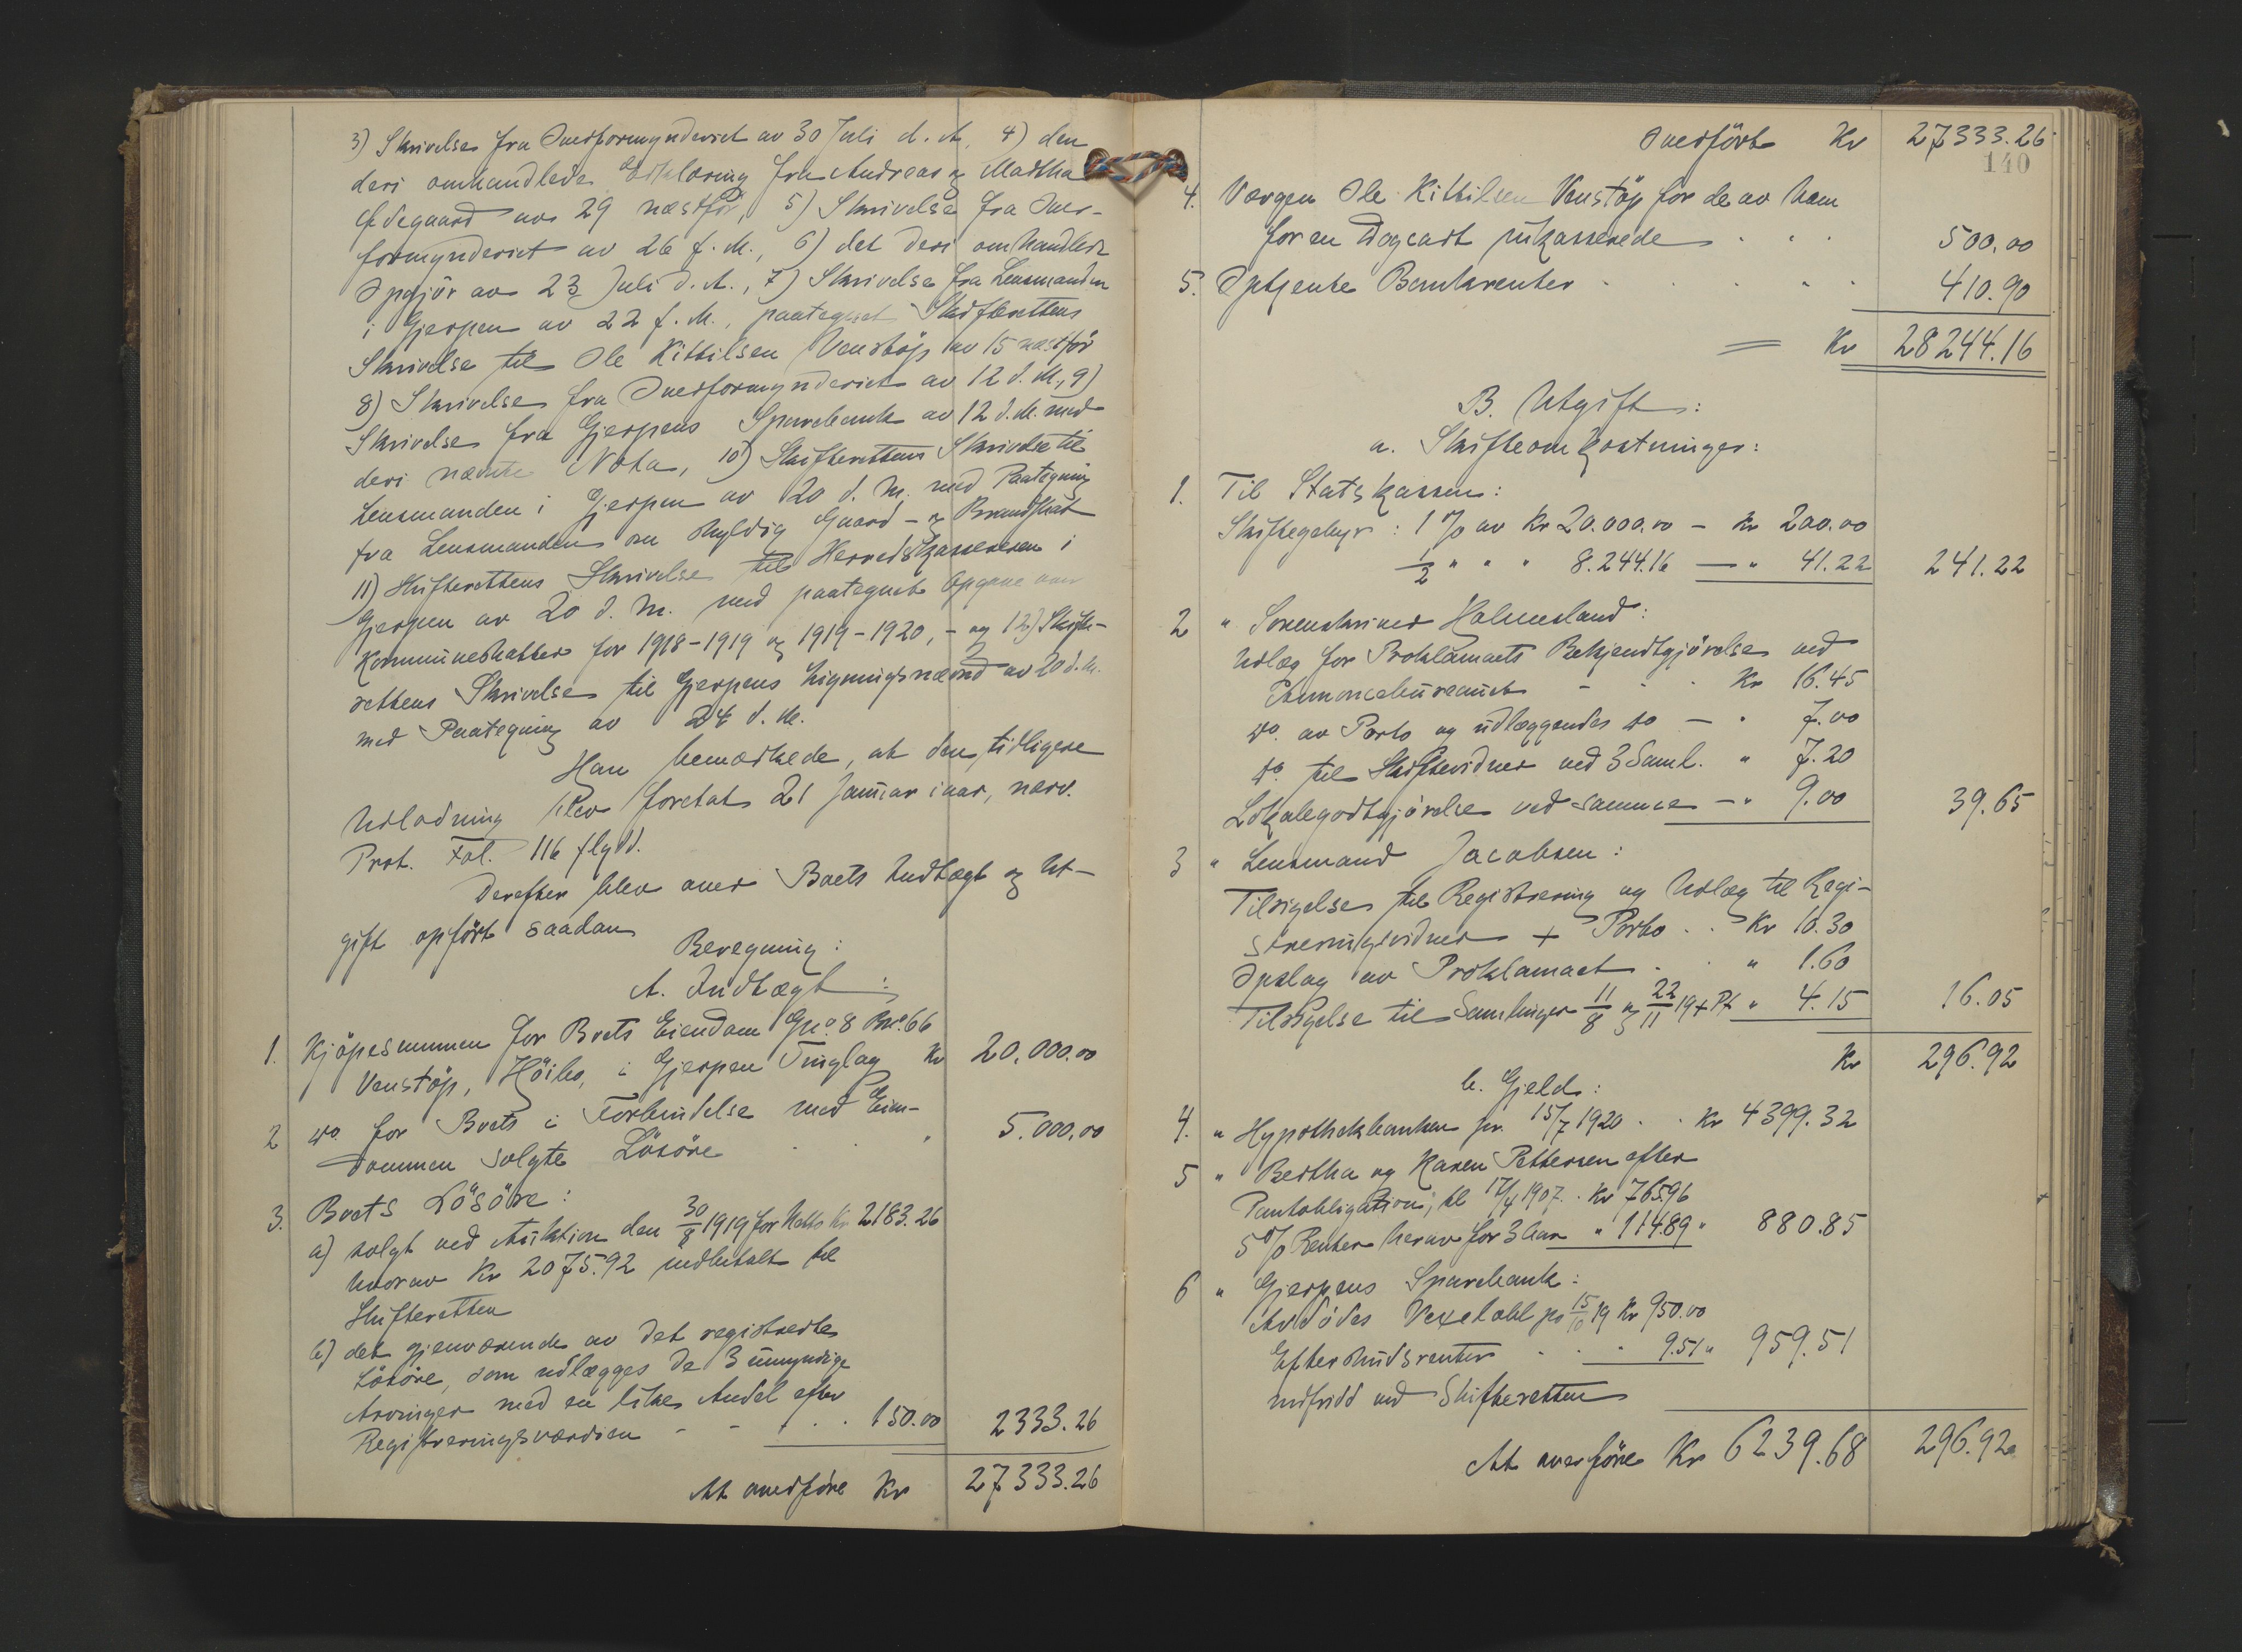 3) Skrivelse fra Overformynderiet av 30 Juli d. A, 4) den
deri omhandlede Erklæring fra Andreas og Martha
Ødegaard av 29 næstfør, 5) Skrivelse fra Over-
formynderiet av 26 f. M., 6) det deri omhandlede
Opgjör av 23 Juli d. A., 7) Skrivelse fra Lensmanden
i Gjerpen av 22 f. M., paategnet Skifterettens
Skrivelse til Ole Kittilsen Venstöp av 15 næstför
8) Skrivelse fra Overformynderiet av 12 d. M., 9)
Skrivelse fra Gjerpens Sparebank av 12 d. M. med
deri nævnte Nota, 10) Skifterettens Skrivelse til
Lensmanden i Gjerpen av 20 d. M. med Paategning
fra Lensmanden om skyldig Gaard- og Brandskat
11) Skifterettens Skrivelse til Herredskassereren i
Gjerpen av 20 d. M. med paategnet Opgave over
Kommuneskatter for 1918-1919 og 1919-1920, - og 12) Skifte-
rettens Skrivelse til Gjerpens Ligningsnævnd av 20 d. M.
med Paategning av 24 d. M.
Han bemærkede, at den tidligere
Utlodning blev foretat 21 Januar iaar, nærv.
Prot. Fol. 116 flgdd.
Derefter blev over Boets Indtægt og Ut-
gift opfört saadan
Beregning:
A. Indtægt:
1. Kjöpesummen for Boets Eiendom Gno 8 Bno. 66
Venstöp, Höibo, i Gjerpen Tinglag Kr 20.000.00
2 do. for Boets i Forbindelse med Eien-
dommen solgte Lösöre . . " 5.000.00
3. Boets Lösöre:
a) solgt ved Auktion den 30/8 1919 for Netto Kr 2183.26
hvorav Kr 2075.92 indbetalt til
Skifteretten
b) det gjenværende av det registrerte
Lösöre, som utlægges de 3 umyndige
Arvinger med en like Andel efter
Registreringsværdien - - . . 150.00 2333.26
At overföre Kr 27333.26
Overfört Kr 27333.26
140
4. Værgen Ole Kittilsen Venstöp for de av ham
for en Dogcart inkasserede . . . 500.00
5. Optjente Bankrenter . . . . . 410.90
= Kr 28244.16
B. Utgift:
a. Skifteomkostninger:
1. Til Statskassen:
Skiftegebyr: 1 % av Kr 20.000.00 - Kr 200.00
1/2 " " " 8.244.16 — " 41.22 241.22
2 " Sorenskriver Holmesland:
Utlæg for Proklamaets Bekjendtgjörelse ved
Annoncebureauet - . . Kr 16.45
do. av Porto og utlæggendes do — " 7.00
do. til Skiftevidner ved 3 Saml. " 7.20
Lokalegodtgjörelse ved samme — " 9.00 39.65
3 " Lensmand Jacobsen:
Tilsigelse til Registrering og Utlæg til Regi-
streringsvidner + Porto . . Kr 10.30
Opslag av Proklamaet . . " 1.60
Tilsigelse til Samlinger 11/8 og 22/11 19 + Pt " 4.15 16.05
Kr 296.92
b. Gjeld:
4. " Hypothekbanken pr. 15/7 1920 . . Kr 4399.32
5 " Bertha og Karen Pettersen efter
Pantobligation, tl 17/4 1907 . Kr 765.96
5 % Renter herav for 3 Aar " 114.89 " 880.85
6 " Gjerpens Sparebank:
Avdödes Vexelobl pr 15/10 19 Kr 950.00
Efterskudsrenter . . . 9.51 " 959.51
indfridd ved Skifteretten
At overföre Kr 6239.68 296.92